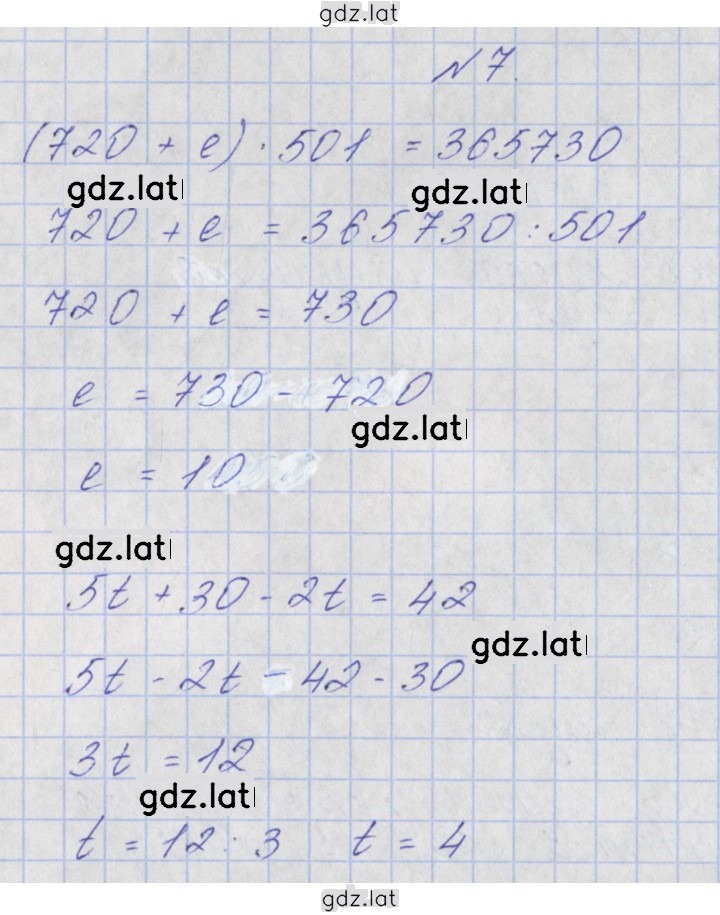 gdz.lat
№ 7.
(720 + e) · 501 = 365730
gdz.lat gdz.lat
720 + e = 365730 : 501
720 + e = 730
e = 730 - 720
gdz.lat
e = 10
gdz.lat
5t + 30 - 2t = 42
gdz.lat
5t - 2t - 42 - 30
3t = 12
gdz.lat
t = 12 : 3 t = 4
gdz.lat